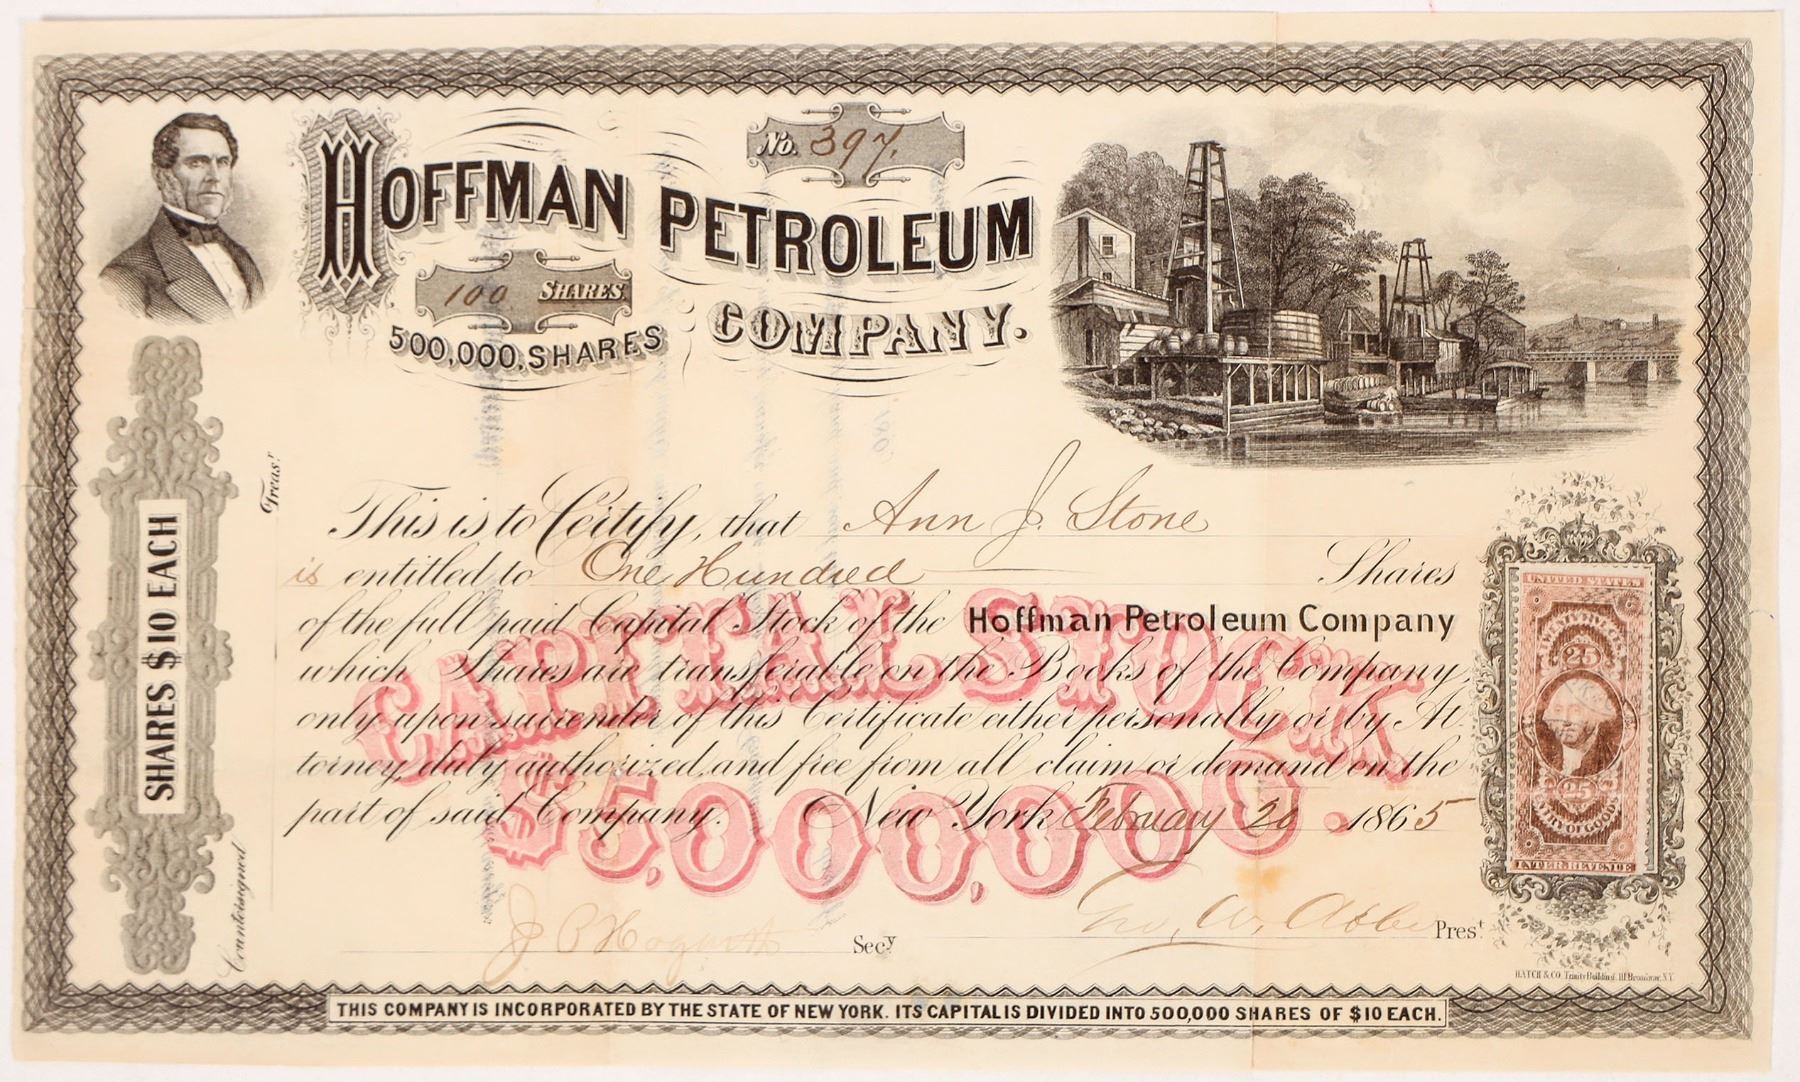 No. 397.
HOFFMAN PETROLEUM
COMPANY.
100 SHARES.
500,000, SHARES
SHARES $10 EACH
Treas.r
Countersigned
This is to Certify, that Ann J. Stone
is entitled to One Hundred Shares
of the full paid Capital Stock of the Hoffman Petroleum Company
which Shares are transferable on the Books of the Company,
only upon surrender of this Certificate either personally or by At
torney duly authorized, and free from all claim or demand on the
part of said Company. New York February 20 1865
CAPITAL STOCK
$5,000,000.
J P Hogarth Secy
Geo. W. Abbe Prest
UNITED STATES
25
25
INTER. REVENUE
HATCH & CO. Trinity Building, 111 Broadway, N.Y.
THIS COMPANY IS INCORPORATED BY THE STATE OF NEW YORK. ITS CAPITAL IS DIVIDED INTO 500,000 SHARES OF $10 EACH.